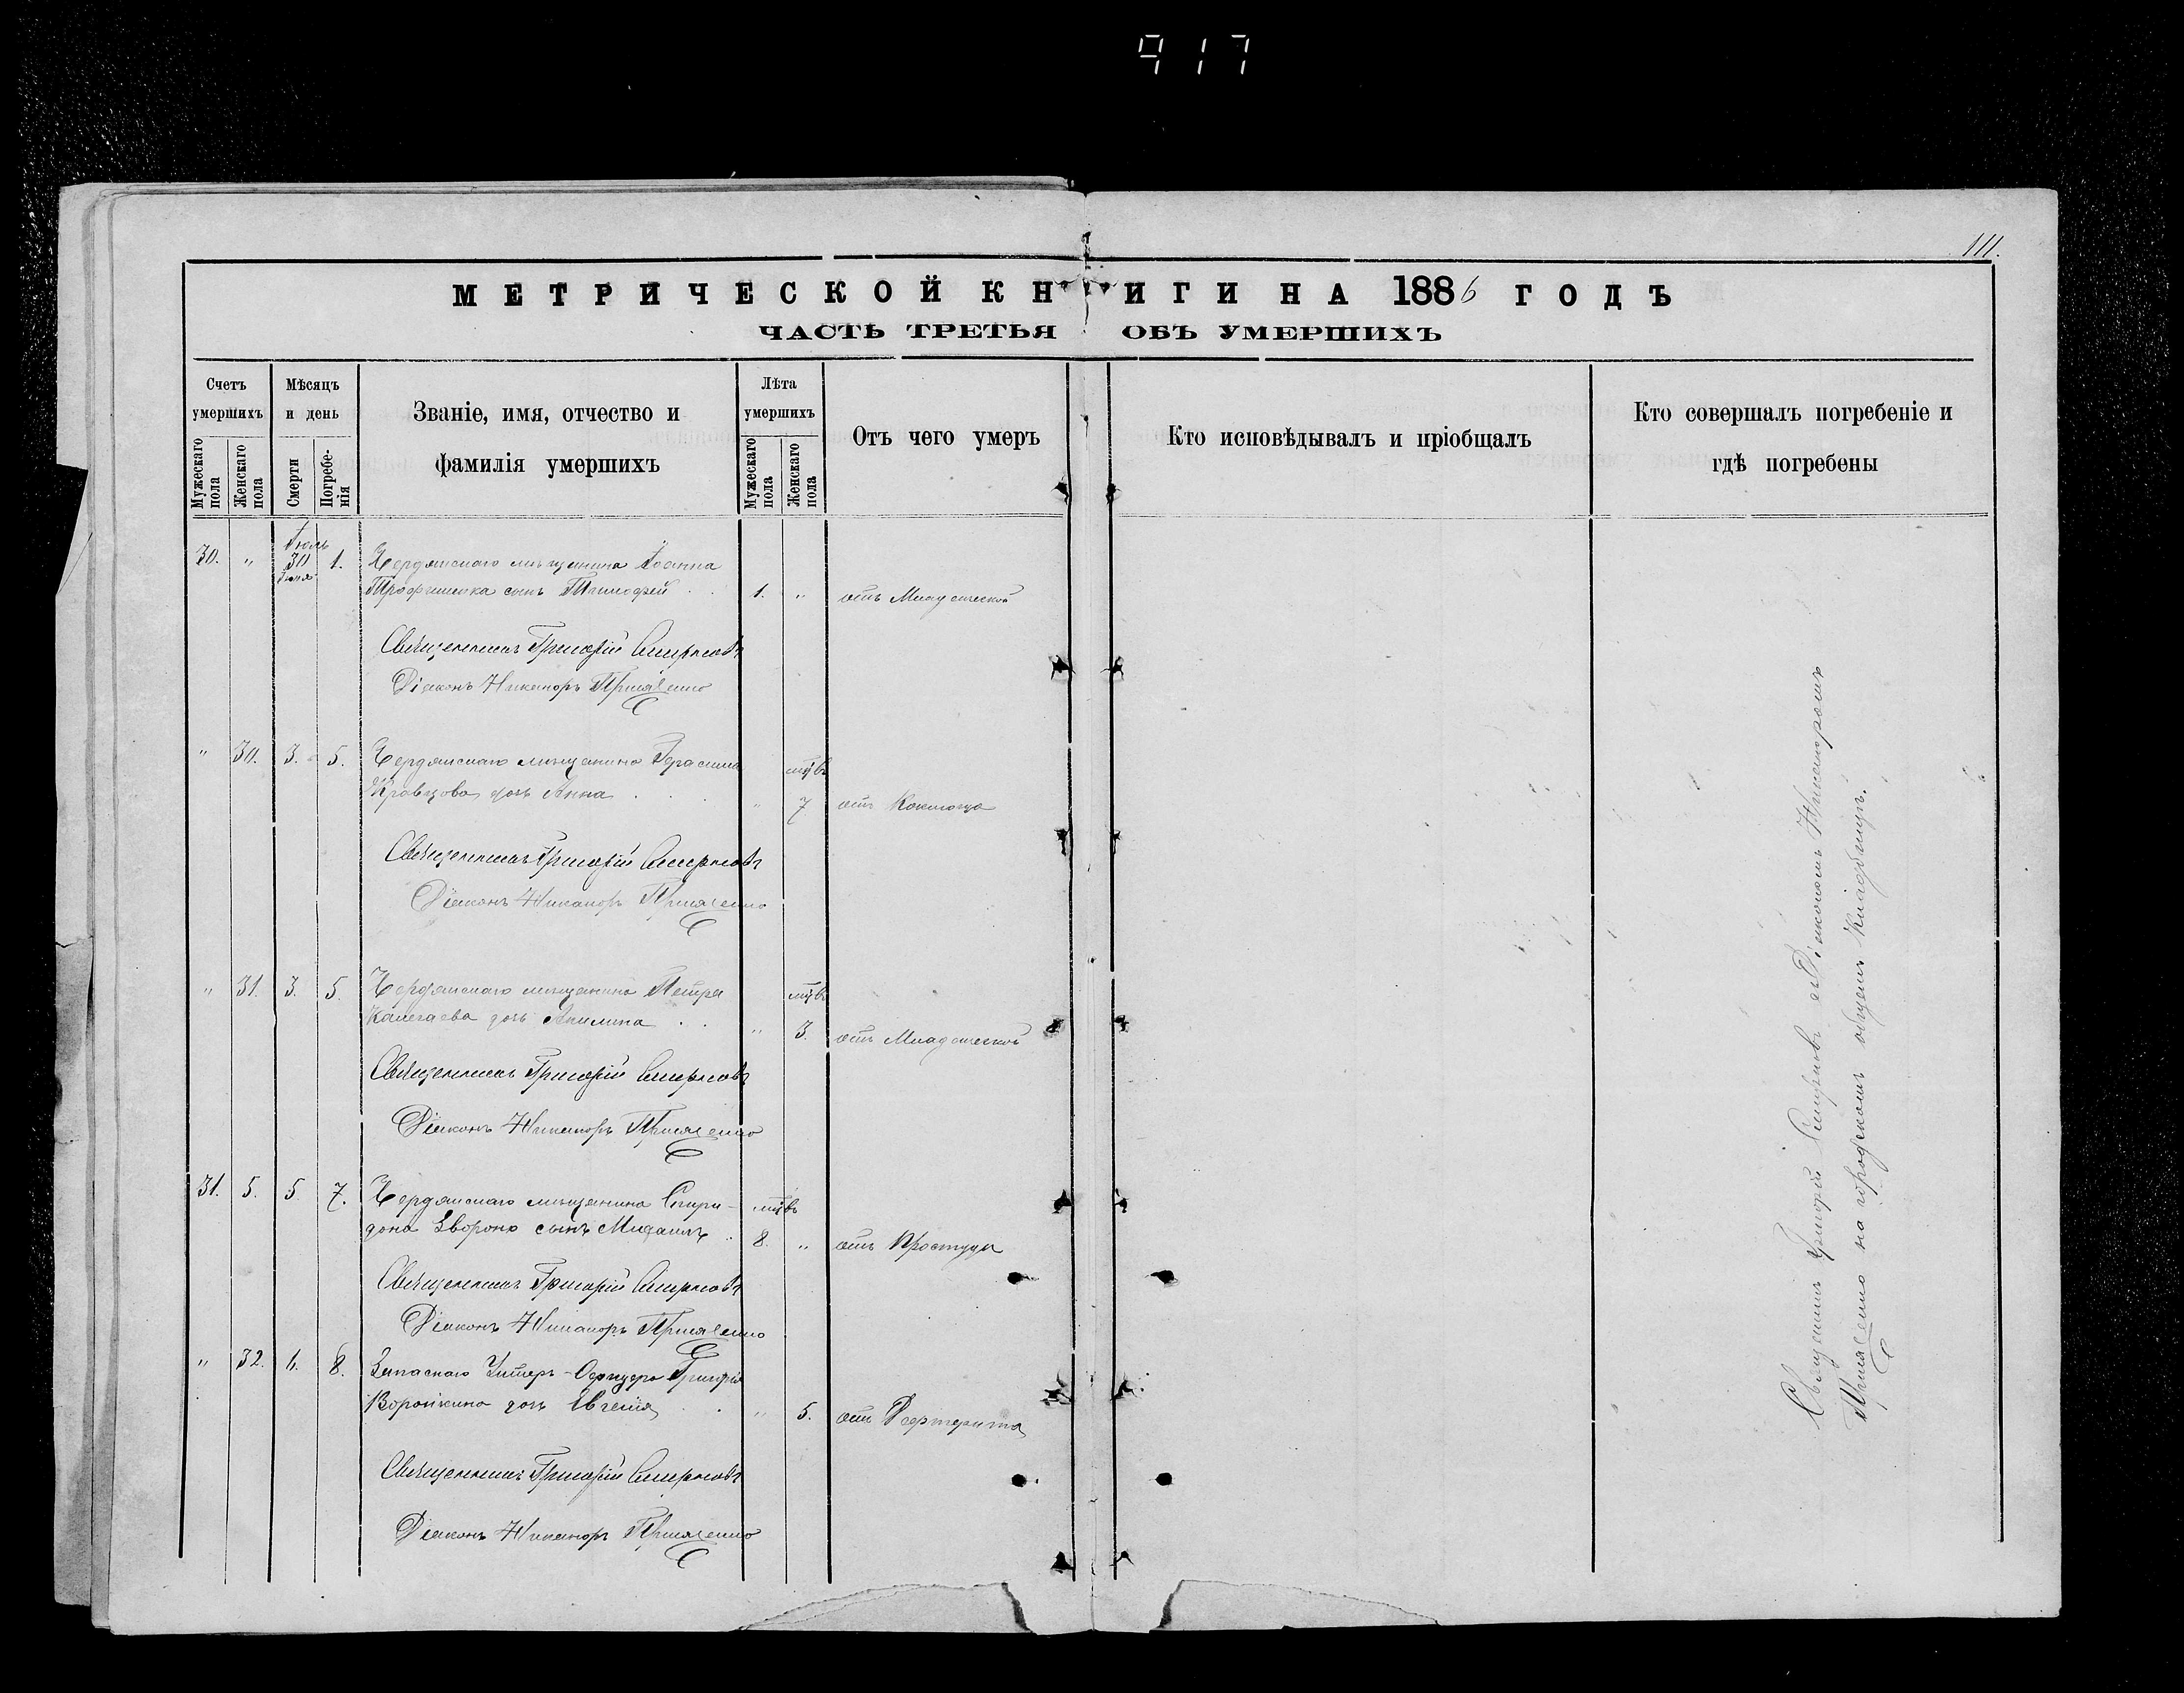 917
111.
МЕТРИЧЕСКОЙ КНИГИ НА 1886 ГОДЪ
ЧАСТЬ ТРЕТЬЯ ОБЪ УМЕРШИХЪ
Счетъ умершихъ
Мужескаго пола
Женскаго пола
Мѣсяцъ и день
Смерти
Погребенія
Званіе, имя, отчество и
фамилія умершихъ
Лѣта умершихъ
Мужескаго пола
Женскаго пола
Отъ чего умеръ
Кто исповѣдывалъ и пріобщалъ
Кто совершалъ погребеніе и
гдѣ погребены
Іюль
30. " 30 1. Бердянскаго мѣщанина Іоанна
Іюня
сынъ Тимофей . . 1. " отъ Младенческой
Священникъ Григорій Смирновъ
Діаконъ Никаноръ
" 30. 3. 5. Бердянскаго мѣщанина Герасима мцвъ
Кравцова дочь Анна . . . " 7 отъ Коклюша
Священникъ Григорій Смирновъ
Діаконъ Никаноръ
" 31. 3. 5. Бердянскаго мѣщанина Петра мцвъ
дочь Акилина . . " 3. отъ Младенческой
Священникъ Григорій Смирновъ
Діаконъ Никаноръ
31. 5. 5 7. Бердянскаго мѣщанина Спири- мцвъ
дона сынъ Михаилъ . 8. " отъ Простуды
Священникъ Григорій Смирновъ
Діаконъ Никаноръ
" 32. 6. 8. Запаснаго Унтеръ-Офицера Григорія
дочь Евгенія . . " 5. отъ Дифтерита
Священникъ Григорій Смирновъ
Діаконъ Никаноръ
Священникъ Григорій Смирновъ съ Діакономъ Никаноромъ
на городскомъ общемъ Кладбищѣ.